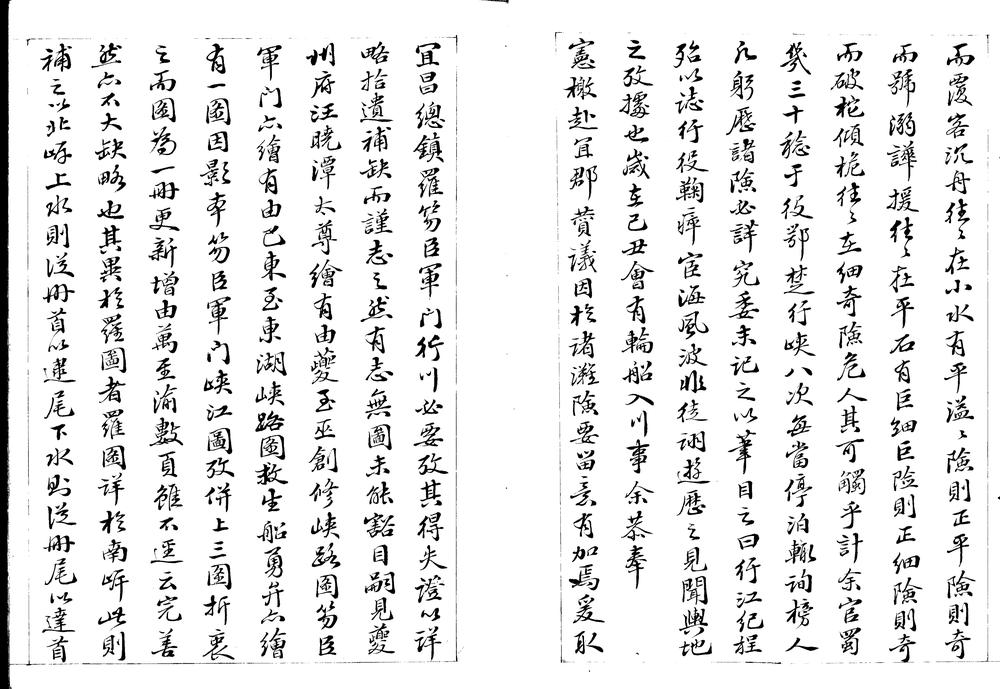 而覆客沉舟往〻在小水有平溢〻險則正平險則奇
而號溺譁援往〻在平石有巨細巨險則正細險則奇
而破柁傾桅往〻在細奇險危人其可觸乎計余官蜀
幾三十稔于役鄂楚行峽八次每當停泊輒詢榜人
凡躬歷諸險必詳究委末記之以筆目之曰行江紀程
殆以誌行役鞠瘁宦海風波非徒詡遊歷之見聞輿地
之攷據也歲在己丑會有輪船入川事余恭奉
憲檄赴宜郡贊議因於諸灘險要留意有加焉爰取
宜昌總鎮羅笏臣軍門行川必要攷其得失證以詳
略拾遺補缺而謹志之然有志無圖未能豁目嗣見夔
州府汪曉潭太尊繪有由夔至巫創修峽路圖笏臣
軍門亦繪有由巴東至東湖峽路圖救生船勇弁亦繪
有一圖因影本笏臣軍門峽江圖攷併上三圖折衷
之而圖為一冊更新增由萬至渝數頁雖不逕云完善
然亦不大缺略也其異於羅圖者羅圖詳於南岍此則
補之以北岍上水則從冊首以逮尾下水則從冊尾以達首